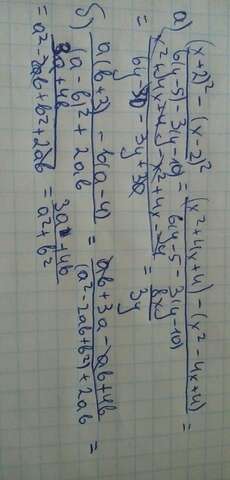 а) (x+2)² - (x-2)² / 6(y-5) - 3(y-10) = (x²+4x+4) - (x²-4x+4) / 6(y-5 - 3(y-10) =
= x²+4x+4 - x²+4x-4 / 6y-30 - 3y+30 = 8x / 3y
б) a(b+3) - b(a-4) / (a-b)² + 2ab = ab+3a-ab+4b / (a²-2ab+b²)+2ab =
= 3a+4b / a²-2ab+b²+2ab = 3a+4b / a²+b²